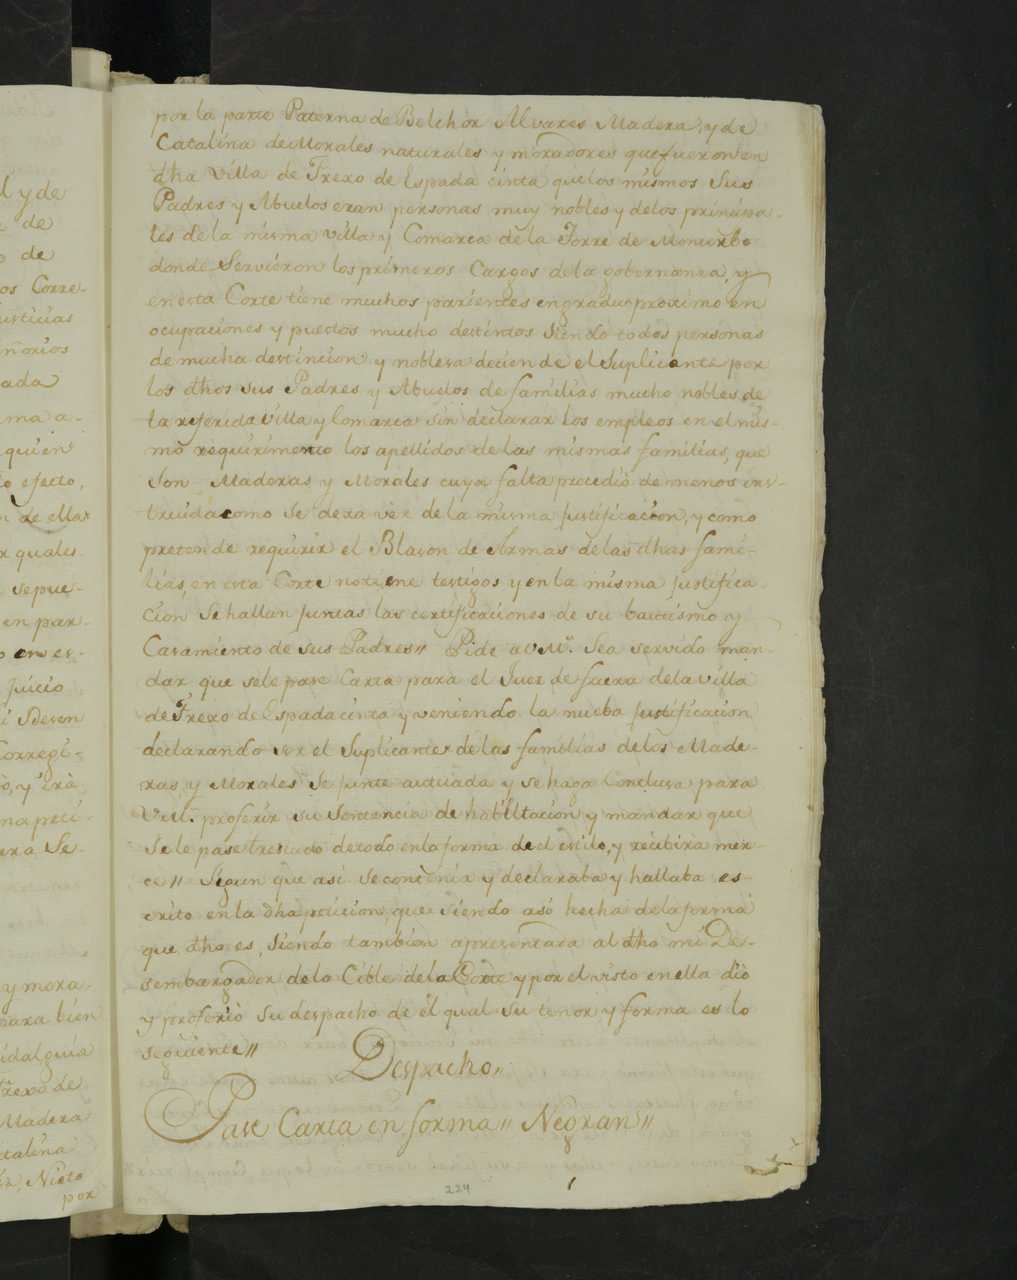 l y de
de
de
os Corre-
usticias
ada
ma a-
quien
efecto,
de ellas
quales-
sepue-
en par-
en es-
Juicio
Deven
Corregi-
y mora-
para bien
idalguia
Frexo de
Madera
talina
Nieto
por
por la parte Paterna de Belchor Alvares Madera, y de
Catalina de Morales naturales y moradores que fueron en
dha Villa de Frexo de Espada cinta que los mismos Sus
Padres y Abuelos eran personas muy nobles y delos principa-
les de la misma villa y Comarca de la Torre de Moncorbo
donde Servieron los primeros Cargos de la gobernanza, y
en esta Corte tiene muchos parientes en gradus proximo en
ocupaciones y puestos mucho destintos siendo todos personas
de mucha destincion y nobleza deciende el Suplicante por
los dhos sus Padres y Abuelos de familias mucho nobles de
la referida Villa y Comarca sin declarar los empleos en el mis-
mo requirimento los apellidos de las mismas familias, que
Son Maderas y Morales cuya falta procedio de menos ins-
truida como se dexa ver de la misma Justificacion, y como
pretende requirir el Blason de Armas de las dhas fami-
lias, en esta Corte no tiene testigos y en la misma Justifica-
cion Se hallan Juntas las certificaciones de su bautismo y
Casamiento de sus Padres // Pide a VM. Sea servido man-
dar que sele pase Carta para el Juez de fuera de la Villa
de Frexo de Espada cinta y veniendo la nueba Justificacion
declarando ser el Suplicante de las familias de los Made-
ras, y Morales Se junte autuada y se haga Concluza para
VM. proferir su Sentencia de habilitacion y mandar que
Se le pase treslado de todo en la forma de el estilo, y recibirà mer-
ce // Segun que asi se contenia y declaraba y hallaba es-
crito en la dha peticion, que siendo asi hecha de la forma
que dho es, Siendo tambien apresentada al dho mi Des-
sembargador de lo Cible de la Corte y por el visto en ella diò
y proferiò su despacho de el qual su tenor y forma es lo
seguiente //
Despacho //
Pase Carta en forma // Negran //
224